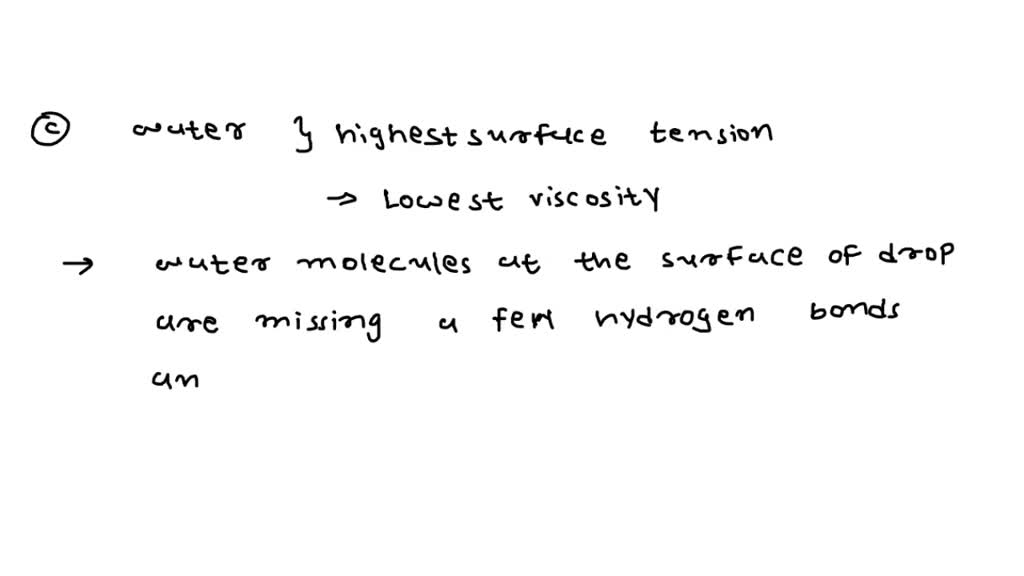 Ⓒ water } highest surface tension
→ Lowest viscosity
→ water molecules at the surface of drop
are missing a few hydrogen bonds
an